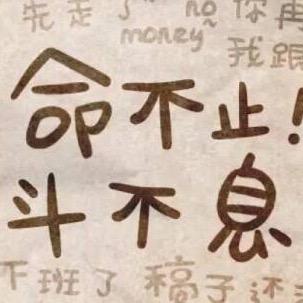 先走了 no 你再
money 我跟
命不止!
斗不息
下班了 稿子还